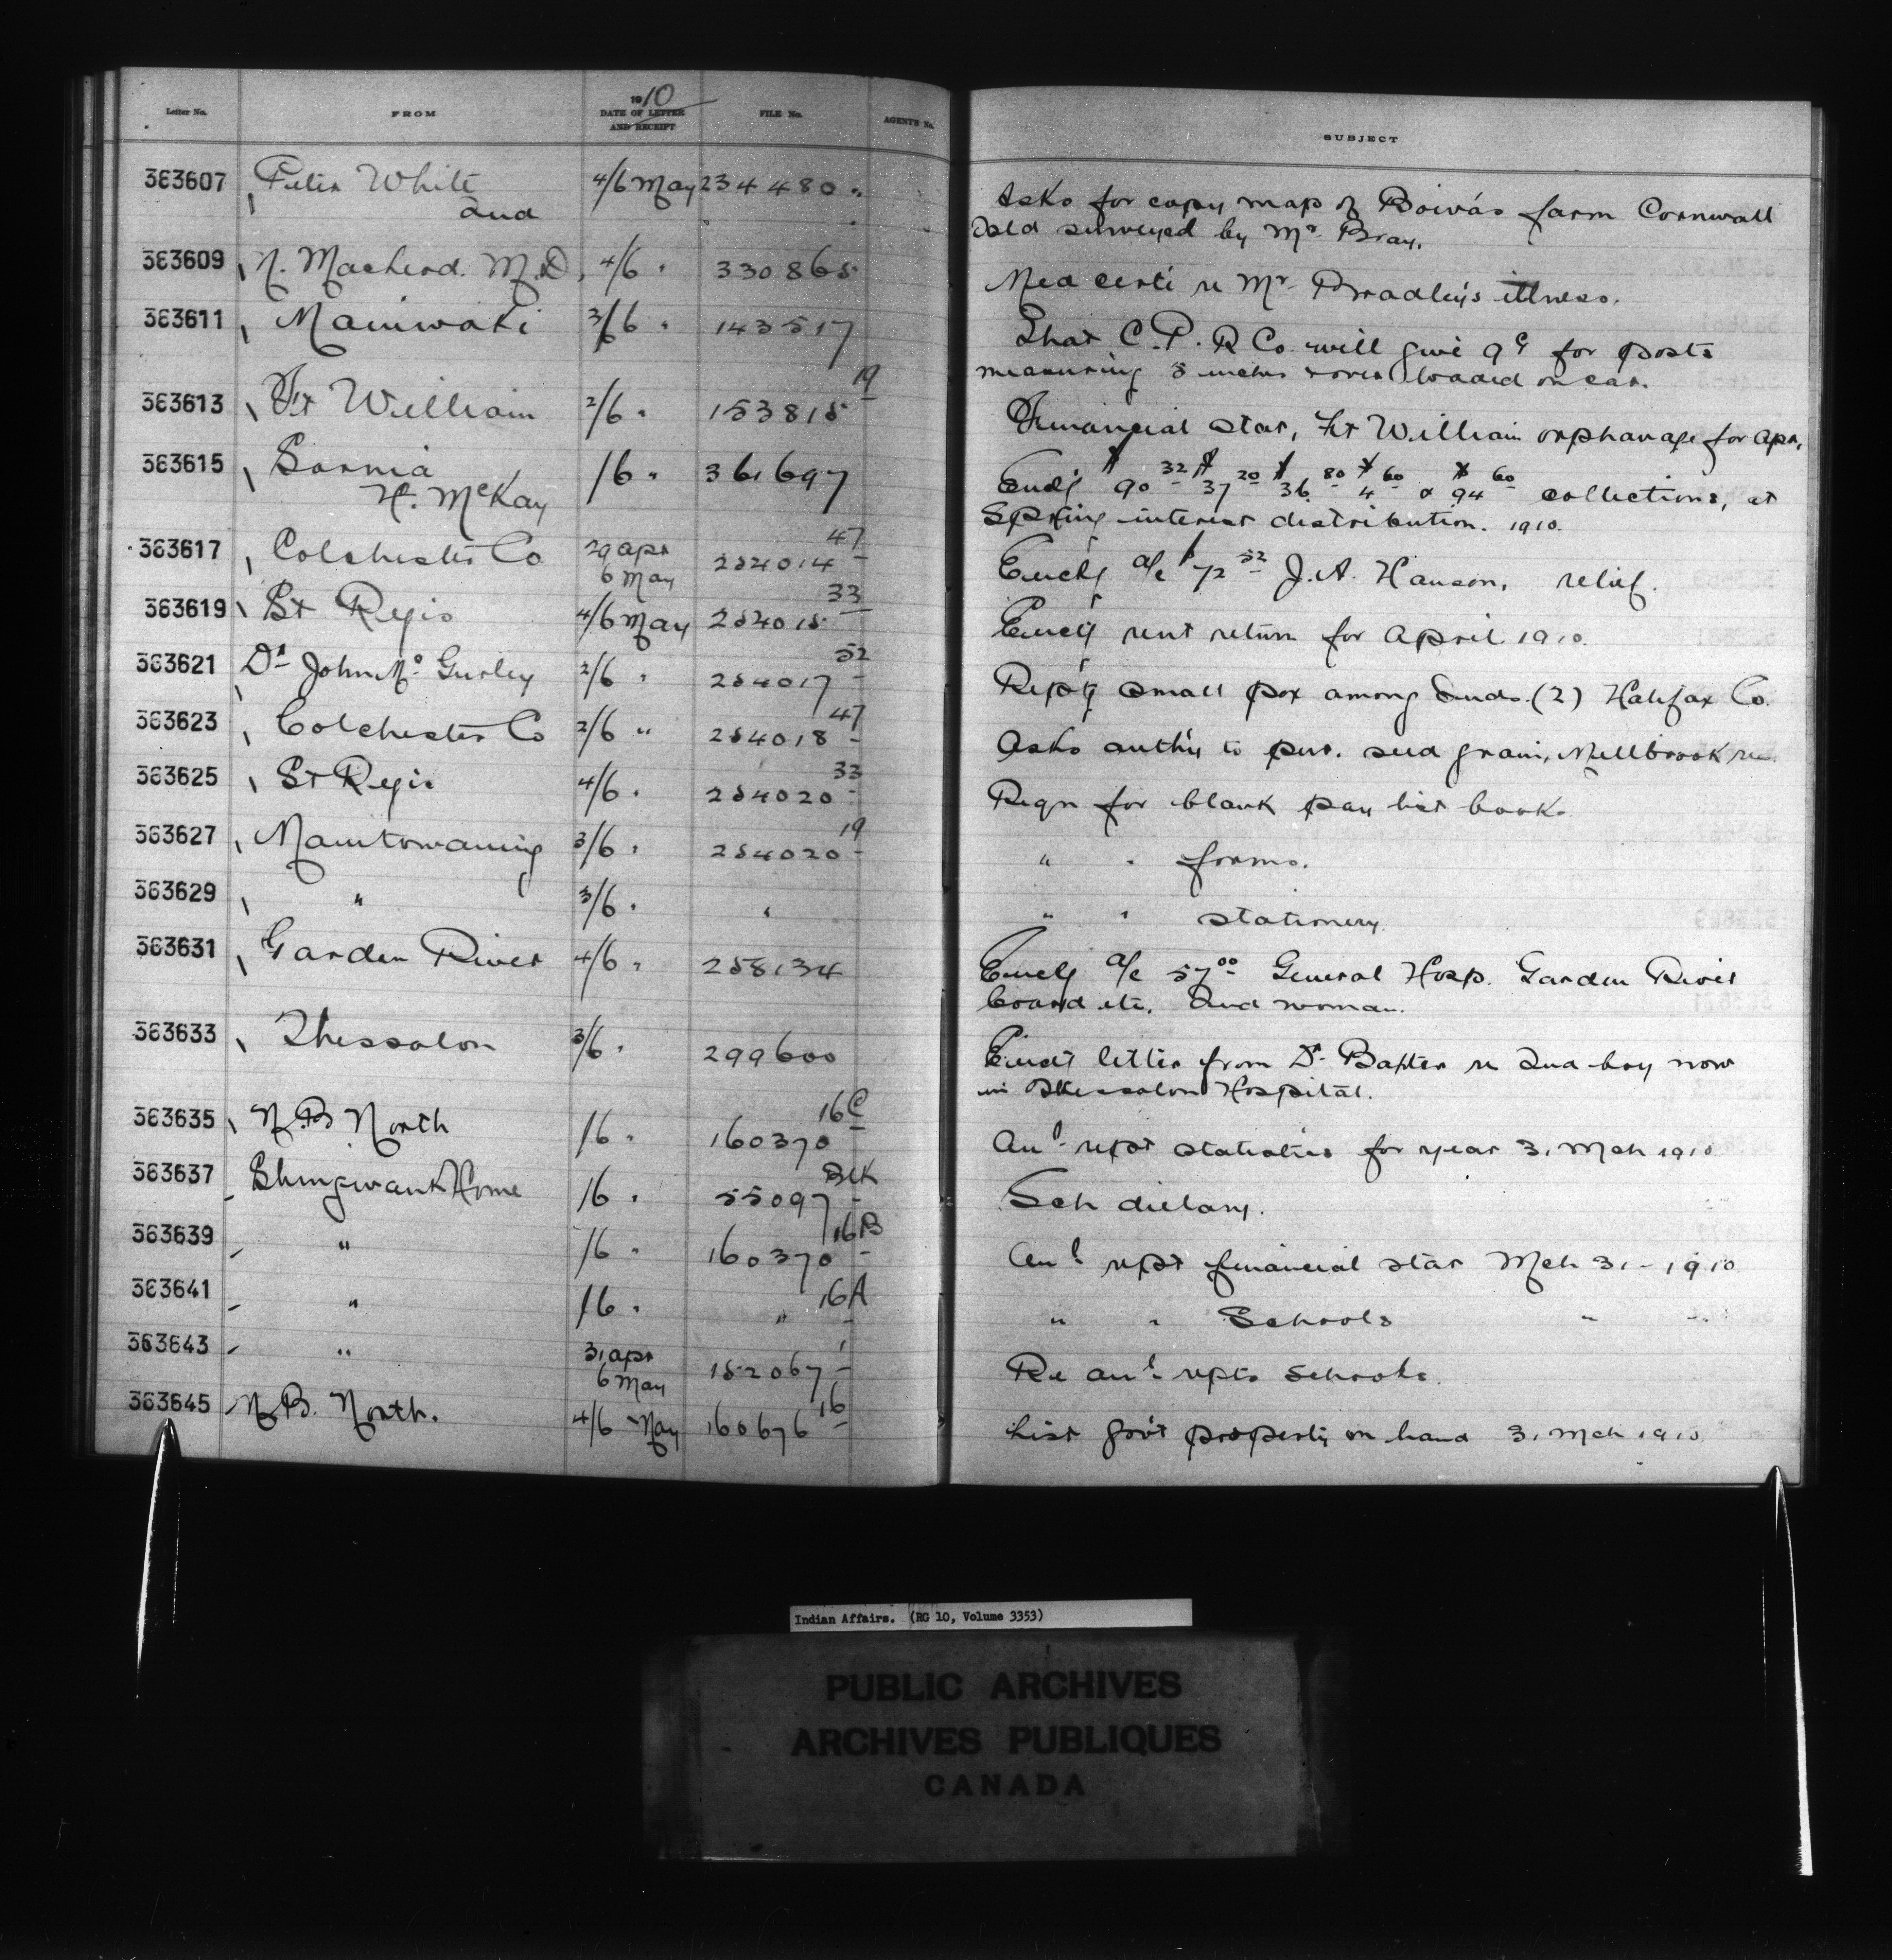 Letter No. FROM 1910 DATE OF LETTER AND RECEIPT FILE No. AGENT'S No. SUBJECT
363607 Peter White 4/6 May 234480 Asks for copy map of Boiva's farm Cornwall
Ind Isld surveyed by Mr. Bray.
363609 N. Macleod. M.D. 4/6 " 330865 Med certi re Mr. Bradley's illness.
363611 Maniwaki 3/6 " 143517 That C.P.R Co. will give 9c for posts
measuring 5 inches over loaded on car.
363613 Ft William 2/6 " 153815 19 Financial stat, Ft William orphanage for Apr.
363615 Sarnia /6 " 361697 Encls $90 32 $37 20 $36 80 $4 60 & $94 60 collections, at
H. McKay Spring interest distribution. 1910.
363617 Colchester Co 29 apr 254014 47 Encls a/c $72 52 J.A. Hanson, relief.
6 May
363619 St Regis 4/6 May 254015 33 Encls rent return for April 1910.
363621 Dr John Mc Gurley 2/6 " 254017 52 Reptg small pox among Inds. (2) Halifax Co.
363623 Colchester Co 2/6 " 254018 47 Asks auth'y to pur. seed grain, Millbrook res.
363625 St Regis 4/6 " 254020 33 Reqn for blank pay list book.
363627 Manitowaning 3/6 " 254020 19 " " forms.
363629 " 3/6 " " " " stationery.
363631 Garden River 4/6 " 258134 Encls a/c 57 00 General Hosp. Garden River
board etc. Ind woman.
363633 Thessalon 3/6 " 299600 Encls letter from Dr. Baxter re Ind boy now
in Thessalon Hospital.
363635 N.B North /6 " 160370 16C Anl rept statistics for year 31 Mch 1910
363637 Shingwauk Home /6 " 55097 Blk Sch dietary.
363639 " /6 " 160370 16B Anl rept financial stat Mch 31 - 1910
363641 " /6 " " 16A " " Schools " "
363643 " 31 apr 152067 1 Re anl repts Schools.
6 May
363645 N.B. North. 4/6 May 160676 16 List Gov't property on hand 31 Mch 1910
Indian Affairs. (RG 10, Volume 3353)
PUBLIC ARCHIVES
ARCHIVES PUBLIQUES
CANADA